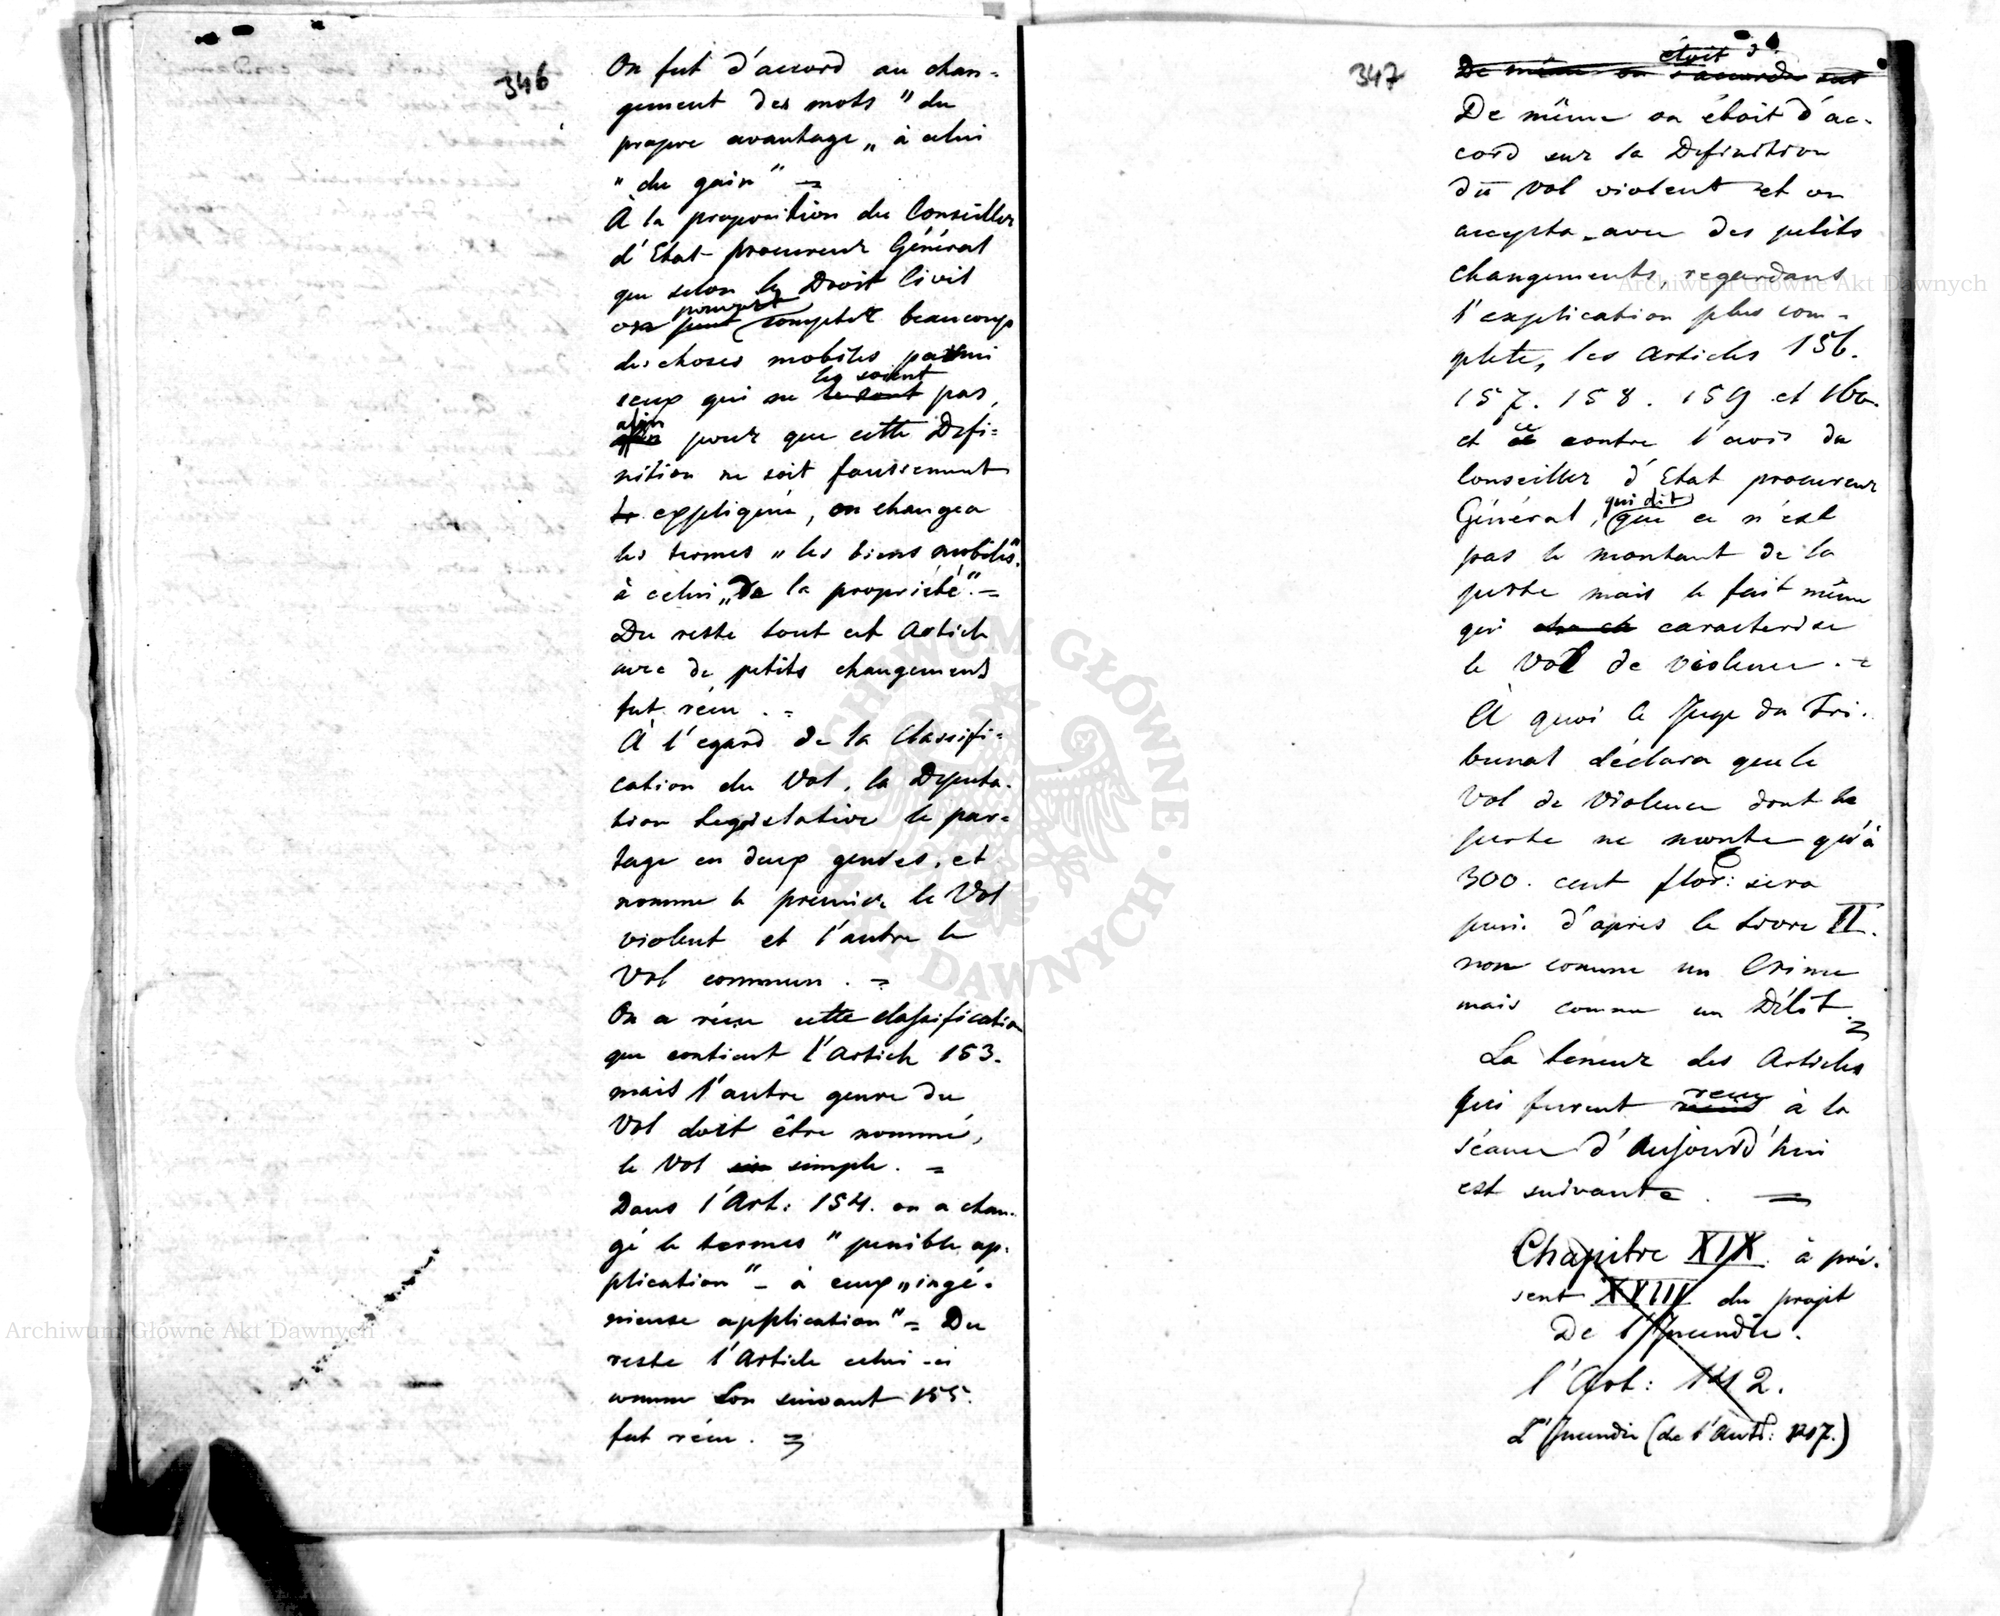 346
On fut d'accord au chan-
gement des mots "du
propre avantage„ à celui
"du gain" =
À la proposition du Conseiller
d'Etat procureur Général
que selon le Droit Civil
pouvant
on peut compter beaucoup
des choses mobiles parmi
les soient
ceux qui ne le sont pas,
afin
afin pour que cette Defi-
nition ne soit faussement
expliquée, on changea
les termes "les biens mobiles"
à celui „de la propriété". =
Du reste tout cet Article
avec de petits changements
fut récu. =
À l'egard de la Classifi-
cation du Vol, la Deputa-
tion Legislative le par-
tage en deux genres, et
nomme le premier le Vol
violent et l'autre le
Vol commun. =
On a récu cette classification
que contient l'Article 153.
mais l'autre genre du
Vol doit être nommé,
le Vol sim simple. =
Dans l'Art: 154. on a chan-
gé le termes "penible ap-
plication" - à eux „ingé-
nieuse application" = Du
reste l'Article celui-ci
comme son suivant 155.
fut récu. =
347
étoit d'
De même on s'accorda sur
De même on étoit d'ac-
cord sur la Definition
du vol violent et on
accepta avec des petits
changements, regardans
l'explication plus com-
plete, les Articles 156.
157. 158. 159 et 160.
et ce contre l'avis du
Conseiller d'Etat procureur
qui dit
Général, que ce n'est
pas le montant de la
perte mais le fait même
qui caracterise
le Vol de violence. =
À quoi le Juge du Tri-
bunal déclara que le
Vol de Violence dont la
perte ne monte qu'à
300. cent flor: sera
puni d'apres le Livre II.
non comme un Crime
mais comme un Délit. =
La teneur des Articles
recu
qui furent recus à la
séance d'Aujourd'hui
est suivante. =
Chapitre XIX. à pré-
sent XVIII du projet
De l'Incendie.
l'Art: 142.
L'Incendie (de l'Art: 207.)
Archiwum Główne Akt Dawnych
Archiwum Główne Akt Dawnych
ARCHIWUM GŁÓWNE · AKT DAWNYCH ·